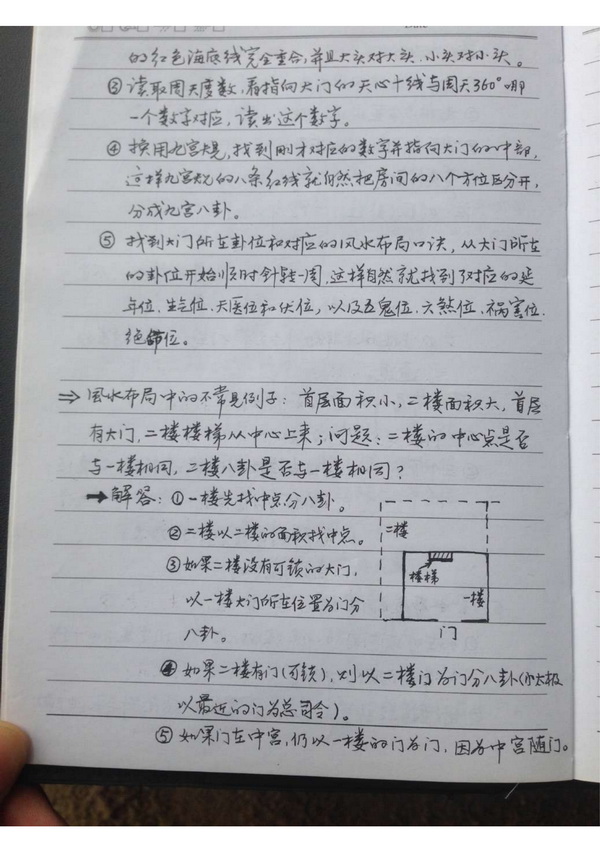 的红色海底线完全重合,并且大头对大头,小头对小头。
③读取周天度数,看指向大门的天心十线与周天360°哪
一个数字对应,读出这个数字。
④换用九宫尺,找到刚才对应的数字并指向大门的中部,
这样九宫尺的八条红线就自然把房间的八个方位区分开,
分成九宫八卦。
⑤找到大门所在卦位和对应的风水布局口诀,从大门所在
的卦位开始顺时针转一周,这样自然就找到了对应的延
年位、生气位、天医位和伏位,以及五鬼位、六煞位、祸害位、
绝命位。
⇒风水布局中的不常见例子:首层面积小,二楼面积大,首层
有大门,二楼楼梯从中心上来;问题:二楼的中心点是否
与一楼相同,二楼八卦是否与一楼相同?
→解答:①一楼先找中点分八卦。
②二楼以二楼的面积找中点。
③如果二楼没有可锁的大门,
以一楼大门所在位置为门分
八卦。
二楼
楼梯
一楼
门
④如果二楼有门(可锁),则以二楼门为门分八卦(小太极
以最近的门为总司令)。
⑤如果门在中宫,仍以一楼的门为门,因为中宫随门。